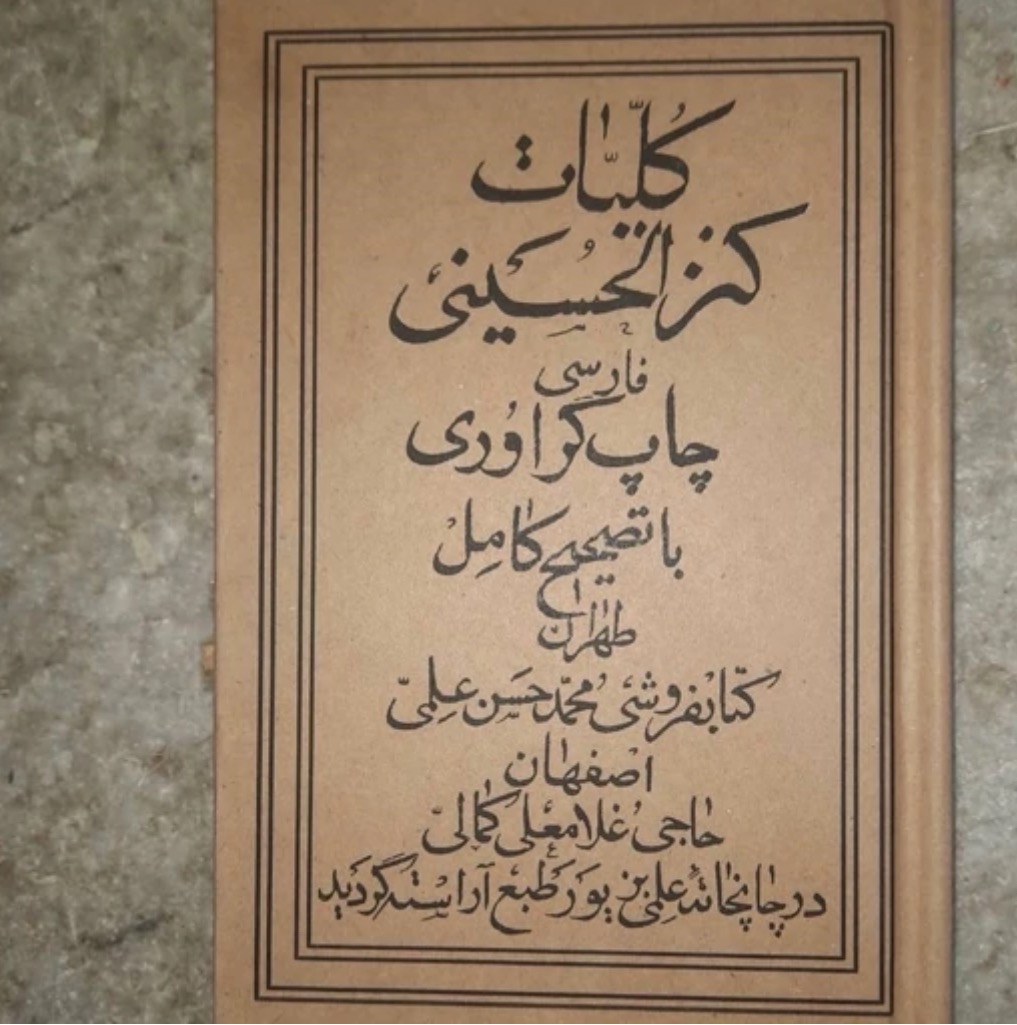 کلیات
کنز الحسینی
فارسی
چاپ گراوری
با تصحیح کامل
طهران
کتابفروشی محمد حسن علمی
اصفهان
حاجی غلامعلی کمالی
در چاپخانه علمی بزیور طبع آراسته گردید